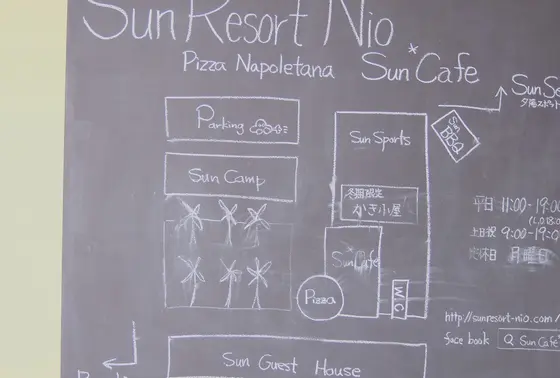 Sun Resort Nio
Pizza Napoletana Sun Cafe
Sun Se
夕陽スポット
Parking
Sun Sports
Sun BBQ
Sun Camp
冬期限定
かき小屋
平日 11:00-19:00
(L.O.18:0
土日祝 9:00-19:0
定休日 月曜日
Sun Cafe
Pizza
W.C
http://sunresort-nio.com/
face book Sun Cafe
Sun Guest House